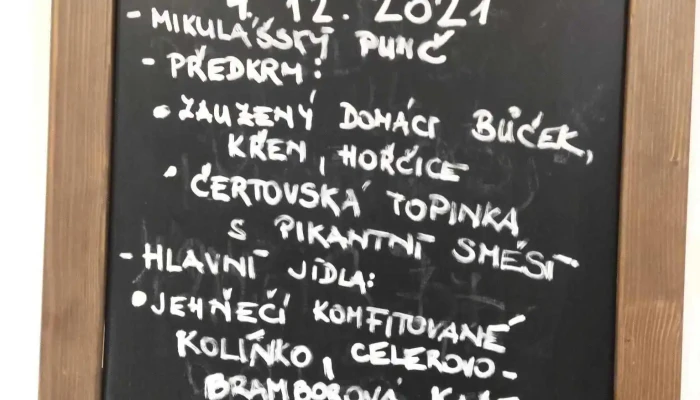 12. 2021
- MIKULÁŠSKÝ PUNČ
- PŘEDKRM:
• ZAUZENÝ DOMÁCÍ BŮČEK,
KŘEN, HOŘČICE
• ČERTOVSKÁ TOPINKA
S PIKANTNÍ SMĚSÍ
- HLAVNÍ JÍDLA:
• JEHŇEČÍ KOMFITOVANÉ
KOLÍNKO, CELEROVO-
BRAMBOROVÁ